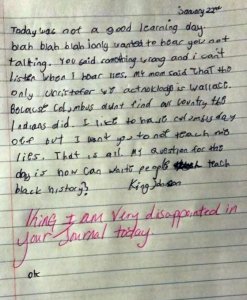 January 22nd
Today was not a good learning day
blah blah blah I only wanted to hear you not
talking. You said something wrong and i can't
listen when I hear lies. My mom said that the
only Christofer we acknoledge is Wallace.
Because Columbus didnt find our country the
Indians did. I like to have columbus day
off but I want you to not teach me
lies. That is all. My question for the
day is how can white people teach
black history?
King Johnson
King I am very disappointed in
your journal today.
ok